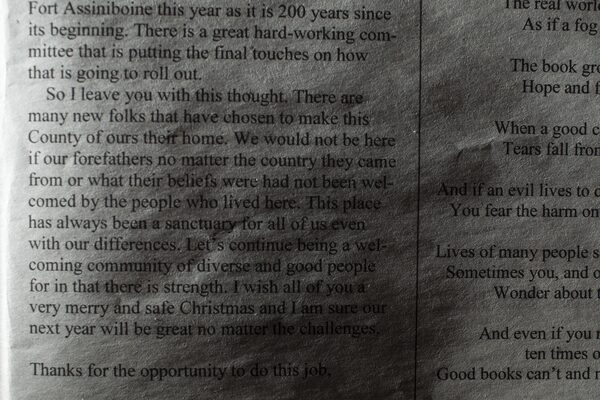 Fort Assiniboine this year as it is 200 years since
its beginning. There is a great hard-working com-
mittee that is putting the final touches on how
that is going to roll out.
So I leave you with this thought. There are
many new folks that have chosen to make this
County of ours their home. We would not be here
if our forefathers no matter the country they came
from or what their beliefs were had not been wel-
comed by the people who lived here. This place
has always been a sanctuary for all of us even
with our differences. Let's continue being a wel-
coming community of diverse and good people
for in that there is strength. I wish all of you a
very merry and safe Christmas and I am sure our
next year will be great no matter the challenges.
Thanks for the opportunity to do this job.
The real worl
As if a fog
The book gr
Hope and f
When a good c
Tears fall from
And if an evil lives to
You fear the harm on
Lives of many people s
Sometimes you, and o
Wonder about t
And even if you r
ten times o
Good books can't and n